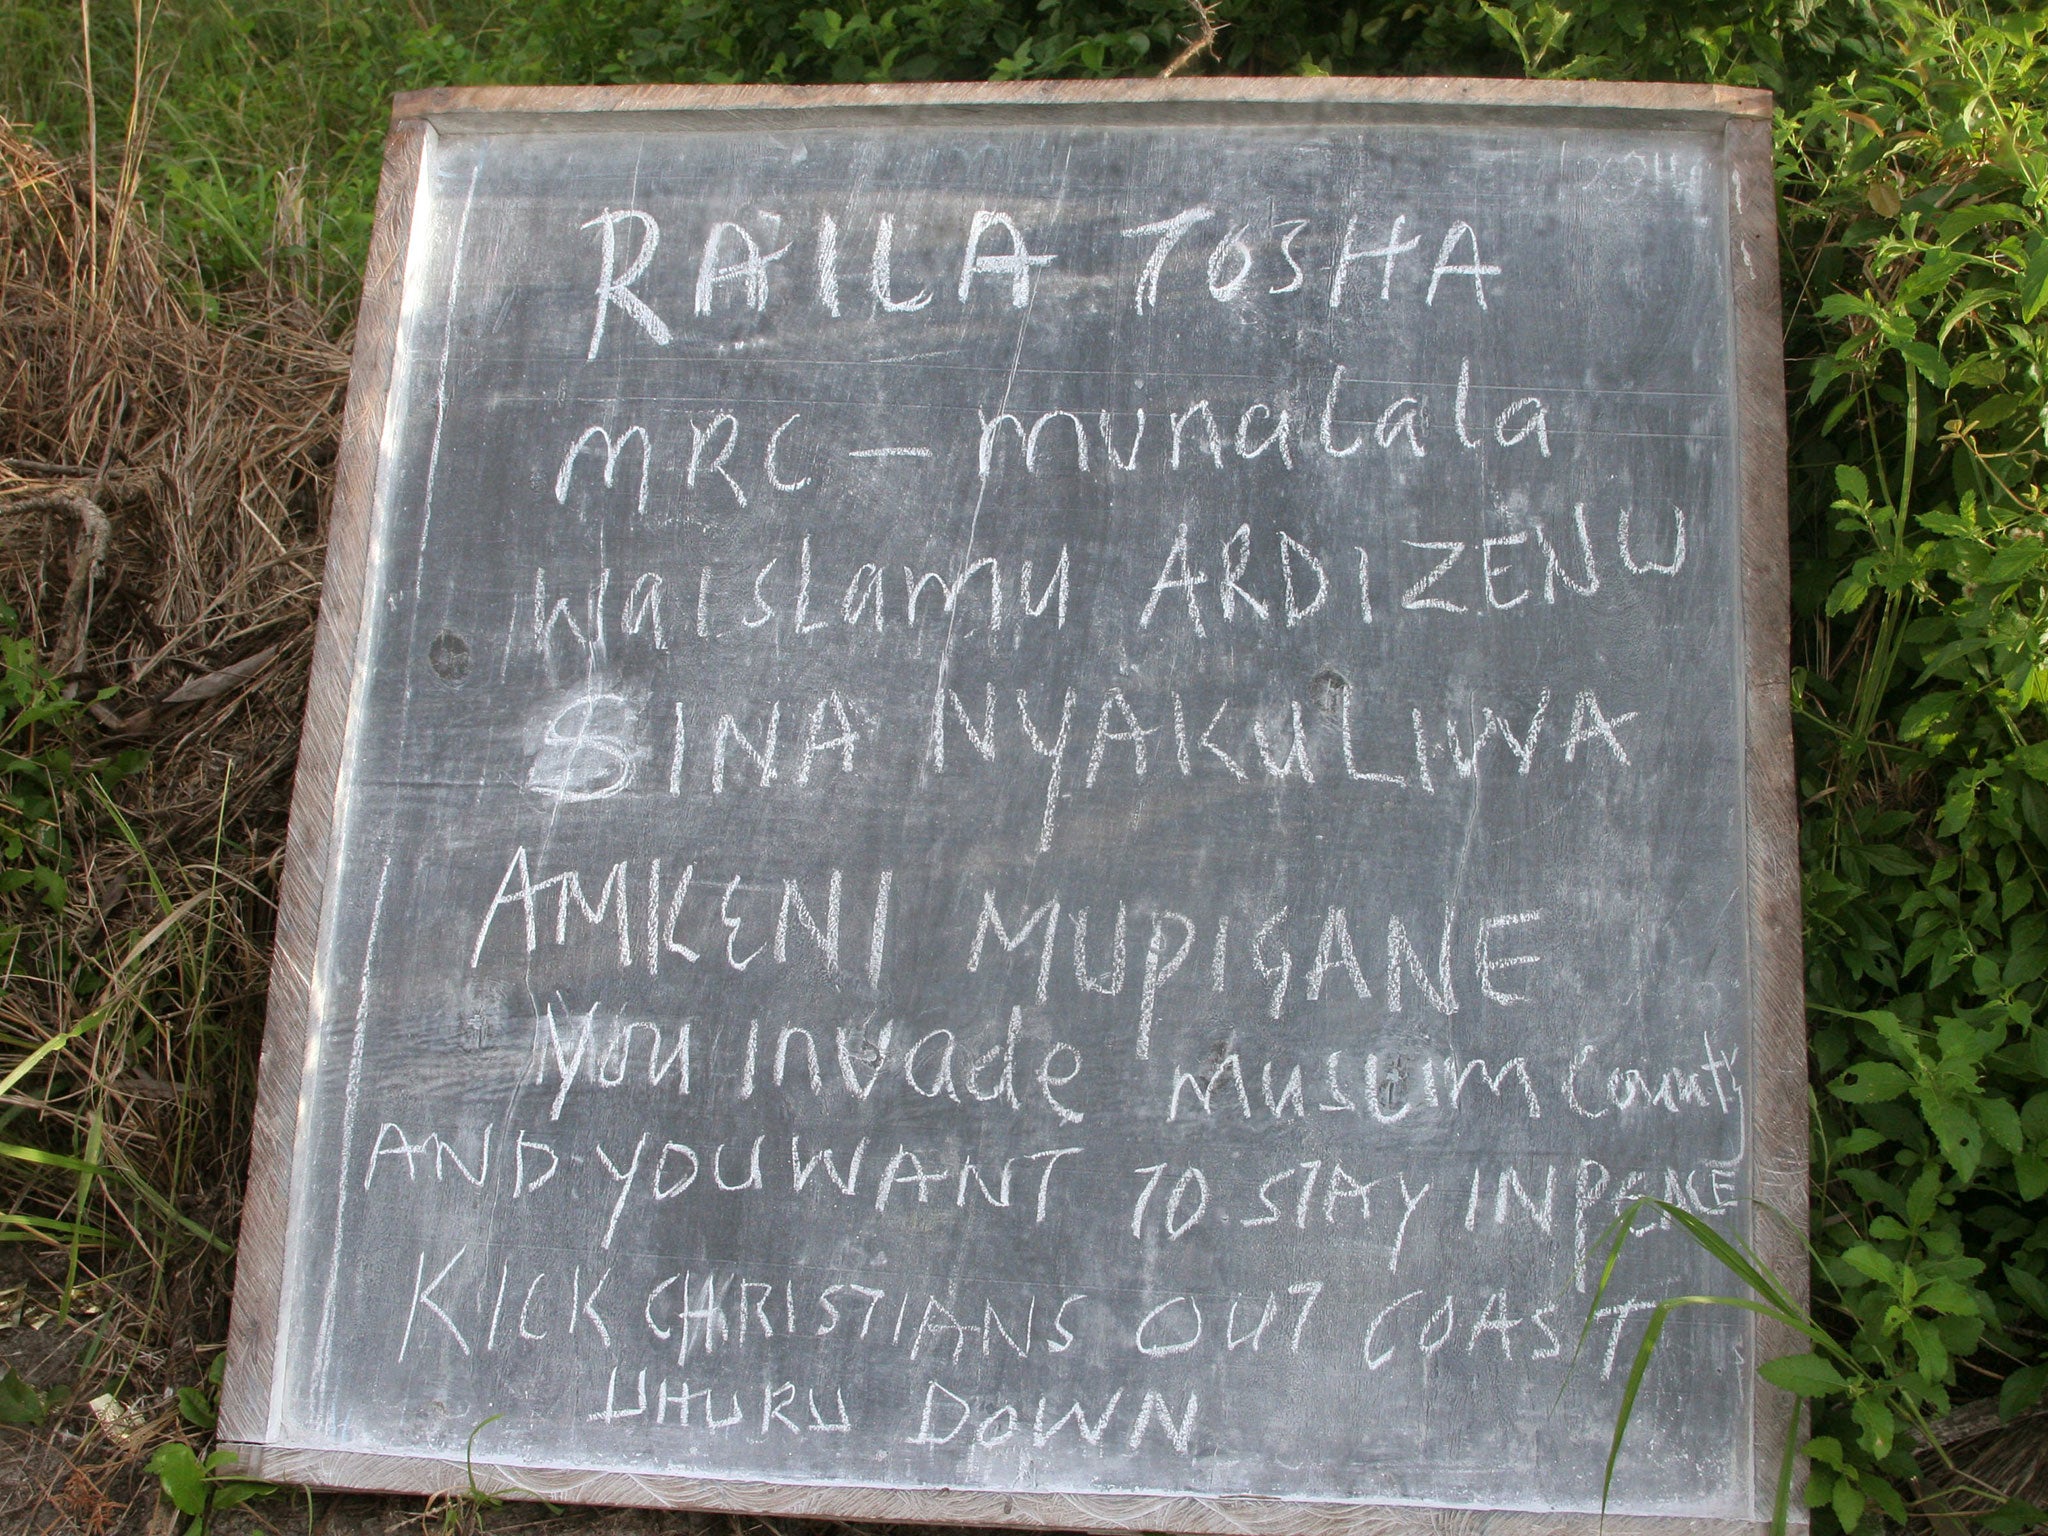 RAILA TOSHA
MRC – munalala
waislamu ARDIZENU
SINA NYAKULIWA
AMKENI MUPIGANE
You invade muslim County
AND YOU WANT TO STAY IN PEACE
KICK CHRISTIANS OUT COAST
UHURU DOWN